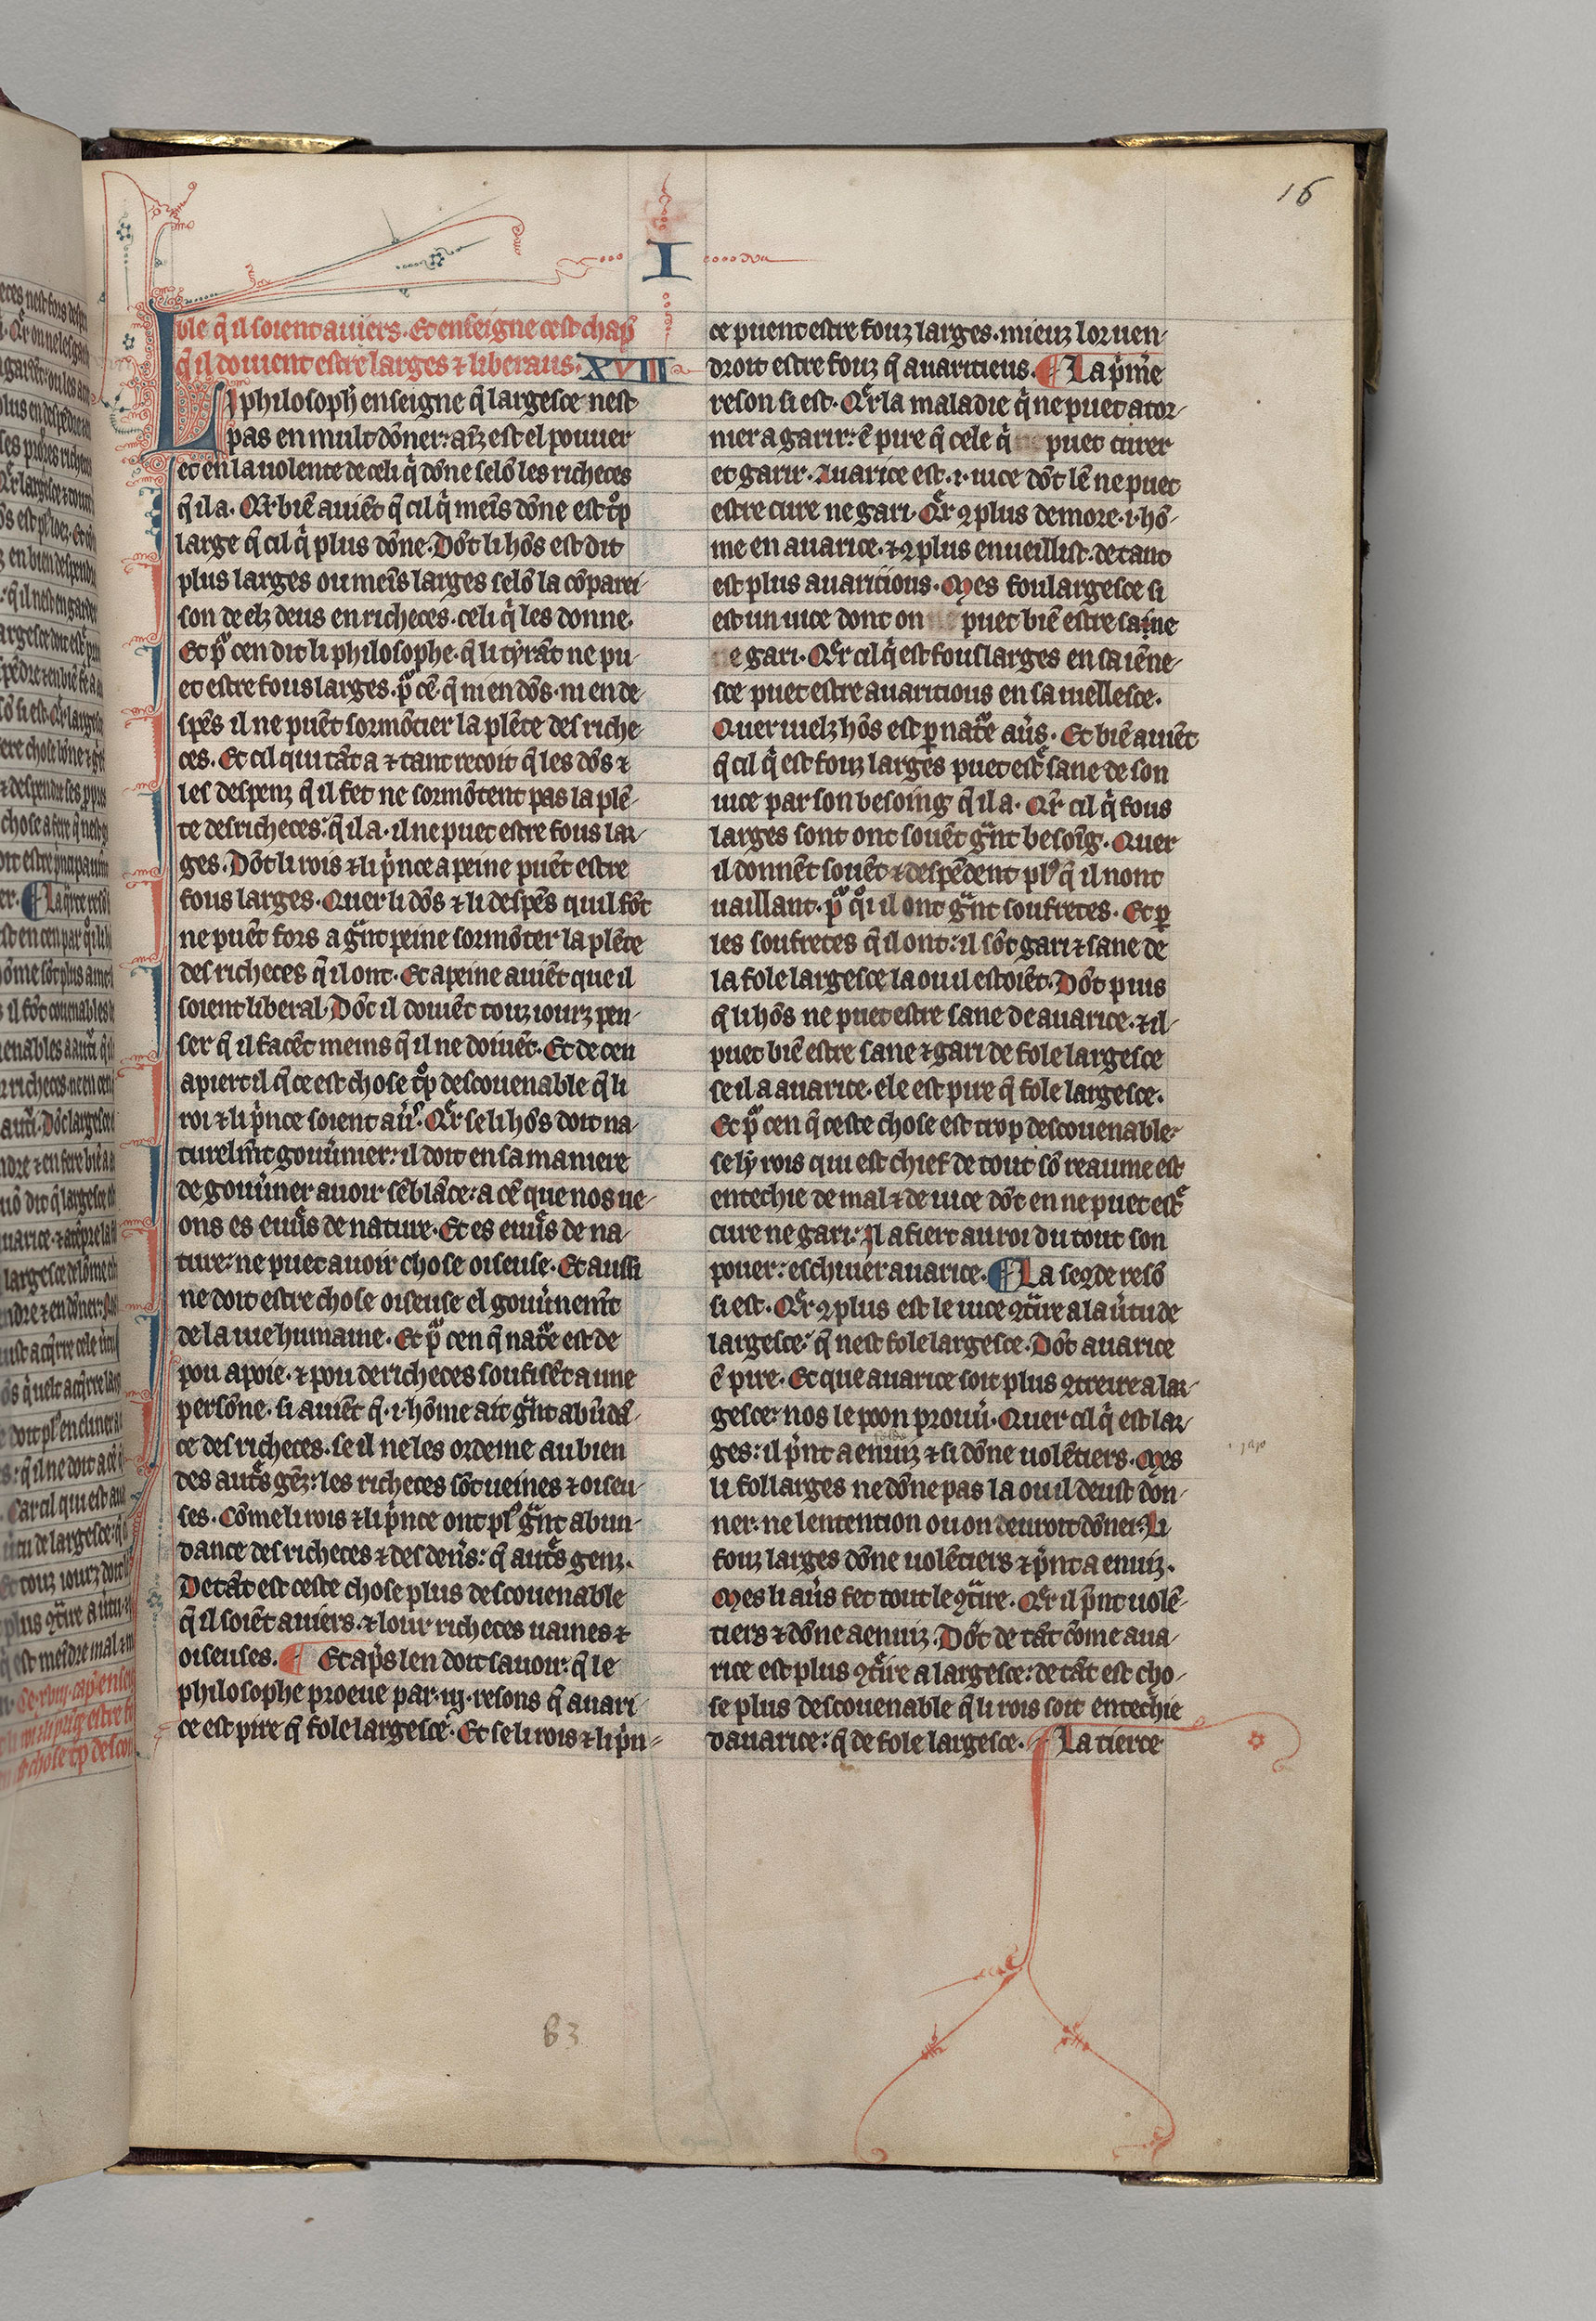 16
I
ble q̃ il soient auiers. Et enseigne cest chap̃
q̃ il doiuent estre larges ⁊ liberaus. XVIII
LI philosoph̃ enseigne q̃ largesce nest
pas en mult dõner: aĩz est el pouuer
et en la uolente de celi q̃ dõne selõ les richeces
q̃ il a. Or biẽ auiẽt q̃ cil q̃ meĩs dõne est tͦp
large q̃ cil q̃ plus dõne. Dõt li hõs est dit
plus larges ou meĩs larges selõ la cõparei-
son de elz deus en richeces. celi q̃ les donne.
Et pͬ cen dit li philosophe. q̃ li tyrãt ne pu-
et estre fous larges. pͬ cẽ. q̃ ni en dõs. ni en de-
spẽs il ne puẽt sormõtier la plẽte des riche-
ces. Et cil qui tãt a ⁊ tant recoit q̃ les dõs ⁊
les despenz q̃ il fet ne sormõtent pas la plẽ-
te des richeces: q̃ il a. il ne puet estre fous lar-
ges. Dõt li rois ⁊ li p̃nce a peine puẽt estre
fous larges. Quer li dõs ⁊ li despẽs quil fõt
ne puẽt fors a gᷓnt peine sormõter la plẽte
des richeces q̃ il ont. Et a peine auiẽt que il
soient liberal. Dõt il doiuẽt touz iourz pen-
ser q̃ il facẽt meins q̃ il ne doiuẽt. Et de cen
apiert il q̃ ce est chose tͦp descouenable q̃ li
roi ⁊ li p̃nce soient aũs. Qr̃ se li hõs doit na-
turelm̃t gouũnier: il doit en sa maniere
de gouũner auoir sẽblãce: a cẽ que nos ue-
ons es euuᷓs de nature. Et es euuᷓs de na-
ture: ne puet auoir chose oiseuse. Et aussi
ne doit estre chose oiseuse el gouũnem̃t
de la uie humaine. Et pͬ cen q̃ natͬe est de
pou apoie. ⁊ pou de richeces soufisẽt a une
persõne. si auiẽt q̃ .i. hõme ait gᷓnt abũdã-
ce des richeces. se il ne les ordeine au bien
des autͬs gẽz: les richeces sõt ueines ⁊ oiseu-
ses. Cõme li rois ⁊ li p̃nce ont plꝰ gᷓnt abun-
dance des richeces ⁊ des deñs: q̃ autͬs genz.
De tãt est ceste chose plus descouenable
q̃ il soiẽt auiers. ⁊ lour richeces uaines ⁊
oiseuses. ¶ Et ap̃s len doit sauoir: q̃ le
philosophe proeue par .iij. resons q̃ auari-
ce est pire q̃ fole largesce. Et se li rois ⁊ li p̃n-
ce puent estre fouz larges. mieuz lor uen-
droit estre fouz q̃ auaricieus. ¶ La p̃m̃e
reson si est. Qr̃ la maladie q̃ ne puet ator-
ner a garir: ẽ pire q̃ cele q̃ puet curer
et garir. Auarice est .i. uice dõt lẽ ne puet
estre cure ne gari. Qr̃ ꝯ plus demore .i. hõ-
me en auarice. ⁊ ꝯ plus enueillist. de tant
est plus auaricious. Mes fou largesce si
est un uice dont on puet biẽ estre saine
e gari. Qr̃ cil q̃ est fous larges en sa iẽne-
sce puet estre auaricious en sa uiellesce.
Quer uielz hõs est ꝑ natͬe aũs. Et biẽ auiẽt
q̃ cil q̃ est fouz larges puet estͬ sane de son
uice par son besoing q̃ il a. Qr̃ cil q̃ fous
larges sont ont souẽt gᷓnt besoĩg. Quer
il donnẽt souẽt ⁊ despẽdent plꝰ q̃ il nont
uaillant. pͬ qͦi il ont gᷓnt soufretes. Et ꝑ
les soufretes q̃ il ont: il sõt gari ⁊ sane de
la fole largesce la ou il estoiẽt. Dõt puis
q̃ li hõs ne puet estre sane de auarice. ⁊ il-
puet biẽ estre sane ⁊ gari de fole largesce
se il a auarice. ele est pire q̃ fole largesce.
Et pͬ cen q̃ ceste chose est trop descouenable:
se ly rois qui est chief de tout sõ reaume est
entechie de mal ⁊ de uice dõt en ne puet estͬ
cure ne gari: Il afiert au roi du tout son
pouer: eschiuer auarice. ¶ La segõde resõ
si est. Qr̃ ꝯ plus est le uice ꝯtᷓire a la ũtu de
largesce: q̃ nest fole largesce. Dõt auarice
ẽ pire. Et que auarice soit plus ꝯtreire a lar-
gesce: nos le poon prouũ. Quer cil q̃ est lar-
ges: il p̃nt a enuiz ⁊ si dõne uolẽtiers. Mes
li fol larges ne dõne pas la ou il deust don-
ner: ne lentention ou on deuroit dõner. Li
fouz larges dõne uolẽtiers ⁊ p̃nt a enuiz.
Mes li aũs fet tout le ꝯtᷓire. Qr̃ il p̃nt uolẽ-
tiers ⁊ dõne a enuiz. Dõt de tãt cõme aua-
rice est plus ꝯtᷓire a largesce: de tãt est cho-
se plus descouenable q̃ li rois soit entechie
dauarice: q̃ de fole largesce. ¶ La tierce
83